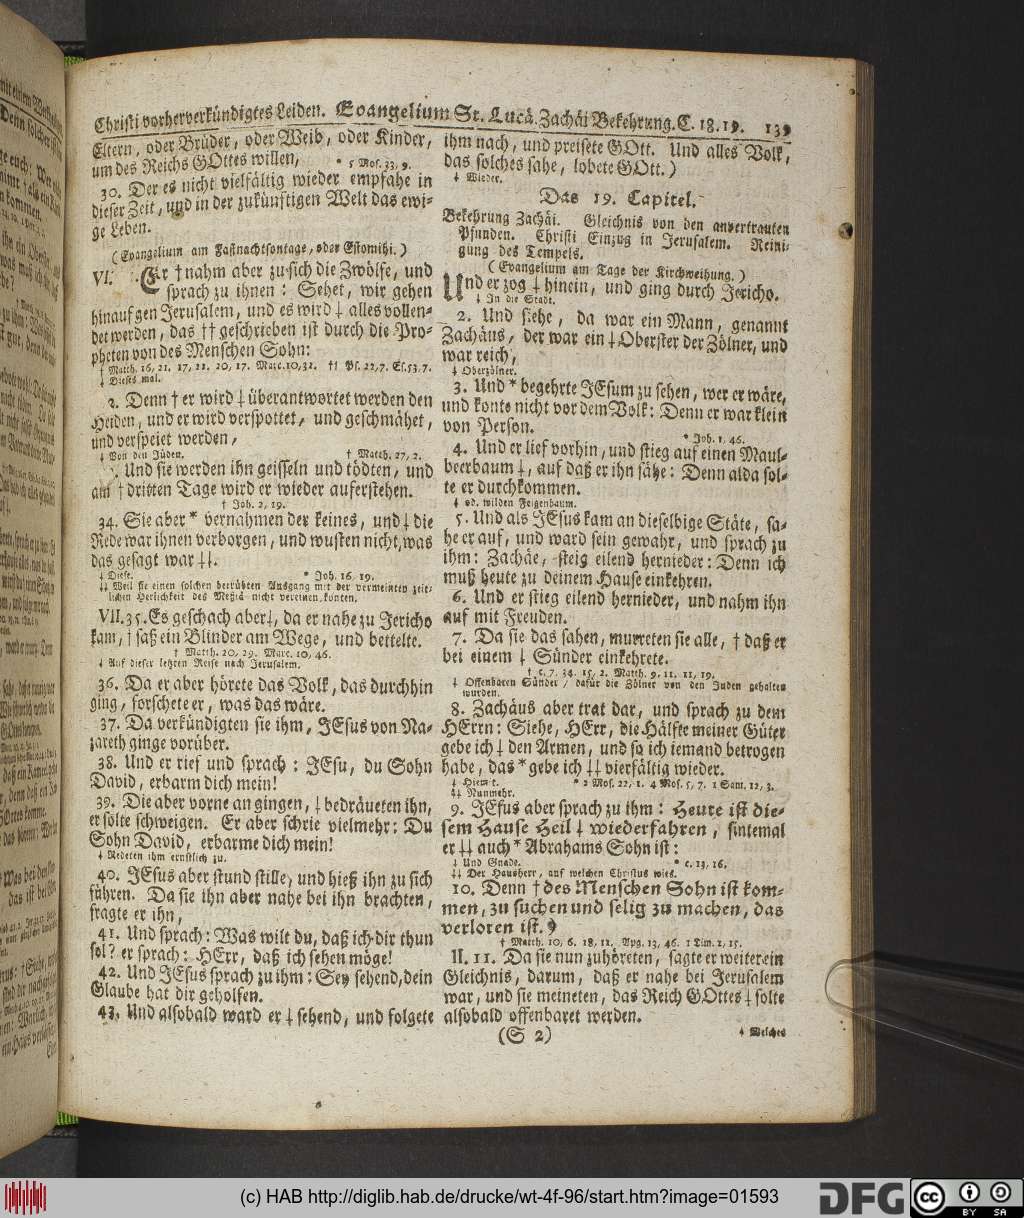 Christi vorherverkündigtes Leiden. Evangelium St. Lucä. Zachäi Bekehrung. C. 18. 19. 139
Eltern, oder Brüder, oder Weib, oder Kinder,
um des Reichs GOttes willen, * 5 Mos. 33, 9.
30. Der es nicht vielfältig wieder empfahe in
dieser Zeit, und in der zukünftigen Welt das ewi-
ge Leben.
(Evangelium am Fastnachtsontage, oder Estomihi.)
VI. Er † nahm aber zu sich die Zwölfe, und
sprach zu ihnen: Sehet, wir gehen
hinauf gen Jerusalem, und es wird ⸸ alles vollen-
det werden, das †† geschrieben ist durch die Pro-
pheten von des Menschen Sohn:
† Matth. 16, 21. 17, 22. 20, 17. Marc. 10, 32. †† Ps. 22, 7. Es. 53, 7.
⸸ Dieses mal.
2. Denn † er wird ⸸ überantwortet werden den
Heiden, und er wird verspottet, und geschmähet,
und verspeiet werden,
⸸ Von den Jüden. † Matth. 27, 2.
Und sie werden ihn geisseln und tödten, und
am † dritten Tage wird er wieder auferstehen.
† Joh. 2, 19.
34. Sie aber * vernahmen der keines, und ⸸ die
Rede war ihnen verborgen, und wusten nicht, was
das gesagt war ⸸⸸.
⸸ Diese. * Joh. 16, 19.
⸸⸸ Weil sie einen solchen betrübten Ausgang mit der vermeinten zeit-
lichen Herlichkeit des Meßiä nicht vereinen konten.
VII. 35. Es geschach aber ⸸, da er nahe zu Jericho
kam, † saß ein Blinder am Wege, und bettelte.
† Matth. 20, 29. Marc. 10, 46.
⸸ Auf dieser letzten Reise nach Jerusalem.
36. Da er aber hörete das Volk, das durchhin
ging, forschete er, was das wäre.
37. Da verkündigten sie ihm, JEsus von Na-
zareth ginge vorüber.
38. Und er rief und sprach: JEsu, du Sohn
David, erbarm dich mein!
39. Die aber vorne an gingen, ⸸ bedräueten ihn,
er solte schweigen. Er aber schrie vielmehr: Du
Sohn David, erbarme dich mein!
⸸ Redeten ihm ernstlich zu.
40. JEsus aber stund stille, und hieß ihn zu sich
führen. Da sie ihn aber nahe bei ihn brachten,
fragte er ihn,
41. Und sprach: Was wilt du, daß ich dir thun
sol? er sprach: HErr, daß ich sehen möge!
42. Und JEsus sprach zu ihm: Sey sehend, dein
Glaube hat dir geholfen.
43. Und alsobald ward er ⸸ sehend, und folgete
ihm nach, und preisete GOtt. Und alles Volk,
das solches sahe, lobete GOtt.)
⸸ Wieder.
Das 19. Capitel.
Bekehrung Zachäi. Gleichnis von den anvertrauten
Pfunden. Christi Einzug in Jerusalem. Reini-
gung des Tempels.
(Evangelium am Tage der Kirchweihung.)
Und er zog ⸸ hinein, und ging durch Jericho.
⸸ In die Stadt.
2. Und siehe, da war ein Mann, genannt
Zachäus, der war ein ⸸ Oberster der Zölner, und
war reich,
⸸ Oberzölner.
3. Und * begehrte JEsum zu sehen, wer er wäre,
und konte nicht vor dem Volk: Denn er war klein
von Person. * Joh. 1, 46.
4. Und er lief vorhin, und stieg auf einen Maul-
beerbaum ⸸, auf daß er ihn sähe: Denn alda sol-
te er durchkommen.
⸸ od. wilden Feigenbaum.
5. Und als JEsus kam an dieselbige Stäte, sa-
he er auf, und ward sein gewahr, und sprach zu
ihm: Zachäe, steig eilend hernieder: Denn ich
muß heute zu deinem Hause einkehren.
6. Und er stieg eilend hernieder, und nahm ihn
auf mit Freuden.
7. Da sie das sahen, murreten sie alle, † daß er
bei einem ⸸ Sünder einkehrete.
† c. 7, 34. 15, 2. Matth. 9, 11. 11, 19.
⸸ Offenbaren Sünder, dafür die Zölner von den Juden gehalten
wurden.
8. Zachäus aber trat dar, und sprach zu dem
HErrn: Siehe, HErr, die Hälfte meiner Güter
gebe ich ⸸ den Armen, und so ich iemand betrogen
habe, das * gebe ich ⸸⸸ vierfältig wieder.
⸸ Hiemit. * 2 Mos. 22, 1. 4 Mos. 5, 7. 1 Sam. 12, 3.
⸸⸸ Nunmehr.
9. JEsus aber sprach zu ihm: Heute ist die-
sem Hause Heil ⸸ wiederfahren, sintemal
er ⸸⸸ auch * Abrahams Sohn ist:
⸸ Und Gnade. * c. 13, 16.
⸸⸸ Der Hausherr, auf welchen Christus wies.
10. Denn † des Menschen Sohn ist kom-
men, zu suchen und selig zu machen, das
verloren ist.)
† Matth. 10, 6. 18, 11. Apg. 13, 46. 1 Tim. 1, 15.
II. 11. Da sie nun zuhöreten, sagte er weiter ein
Gleichnis, darum, daß er nahe bei Jerusalem
war, und sie meineten, das Reich GOttes ⸸ solte
alsobald offenbaret werden.
(S 2) ⸸ Welches
(c) HAB http://diglib.hab.de/drucke/wt-4f-96/start.htm?image=01593
DFG
cc BY SA